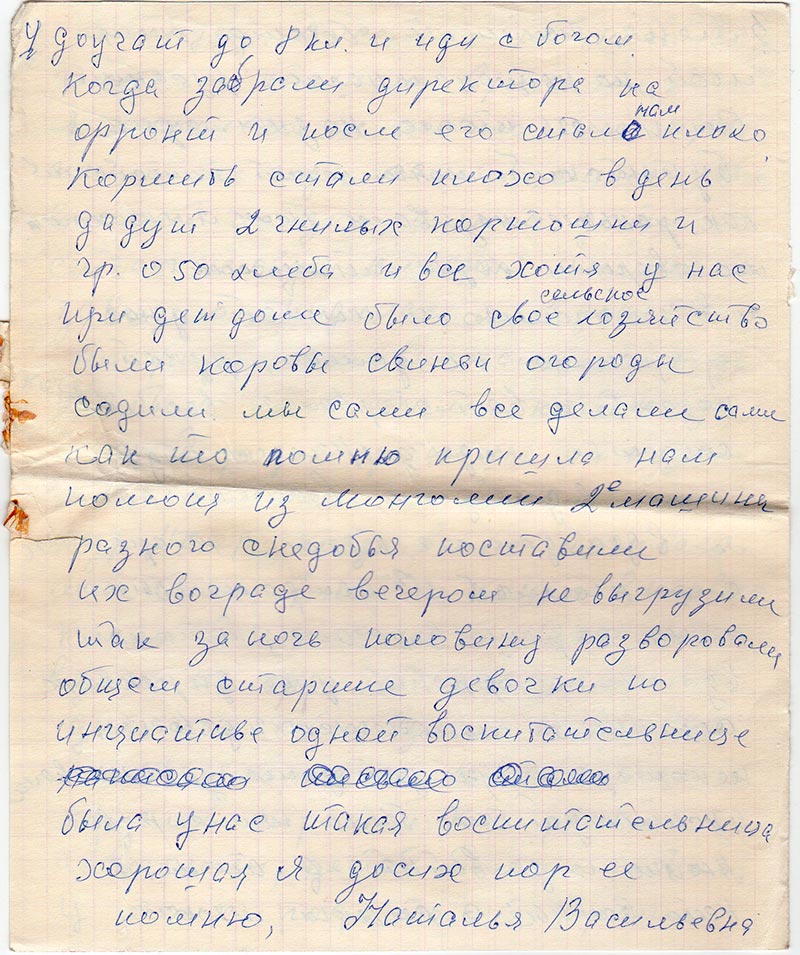 4 доучат до 8 кл. и иди с богом.
когда забрали директора на
орронт и после его стало нам плохо,
кормить стали плохо в день
дадут 2 гнилых картошки и
гр. 050 хлеба и все хотя у нас
при дет доме было свое сельское хозяйство
были коровы свиньи огороды
садили мы сами все делали сами
как то помню пришла нам
помощ из монголии 2е машины
разного снедобья поставили
их вограде вечером не выгрузили
так за ночь половину разворовали
общем старшие девочки по
инциативе одной воспитательнице
была у нас такая воспитательница
хорошая я досих пор ее
помню, Наталья Васильевна